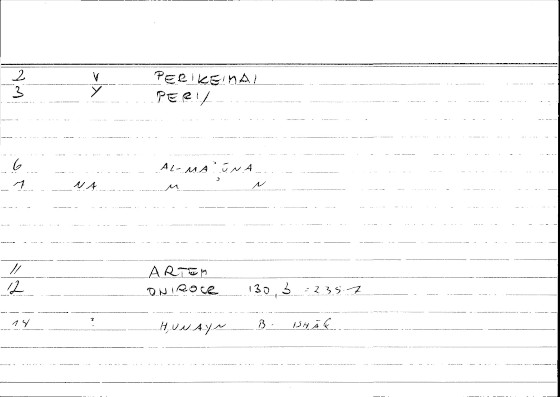 2 V PERIKEIMAI
3 Y PERI/
6 AL-MAʾŪNA
1 NA M ʾ N
11 ARTEM
12 ONIROCR 130,
14 HUNAYN B.